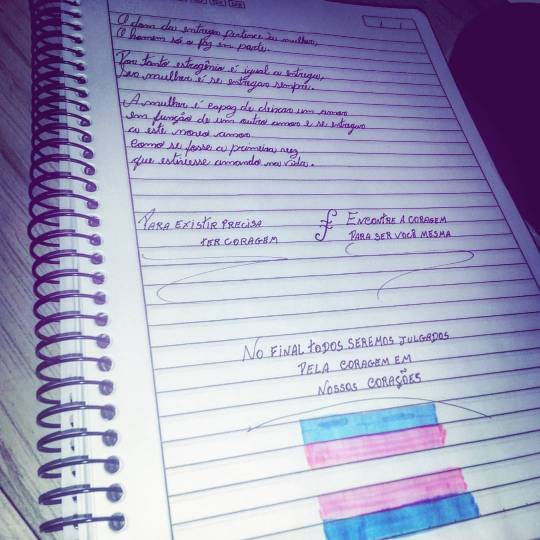 O dom da entrega pertence à mulher,
O homem só o faz em parte.
Por tanto estrogênio é igual a entrega,
Ser mulher é se entregar sempre.
A mulher é capaz de deixar um amor
em função de um outro amor e se entregar
a este novo amor
como se fosse a primeira vez
que estivesse amando na vida.
PARA EXISTIR PRECISA
TER CORAGEM
ENCONTRE A CORAGEM
PARA SER VOCÊ MESMA
NO FINAL TODOS SEREMOS JULGADOS
PELA CORAGEM EM
NOSSOS CORAÇÕES